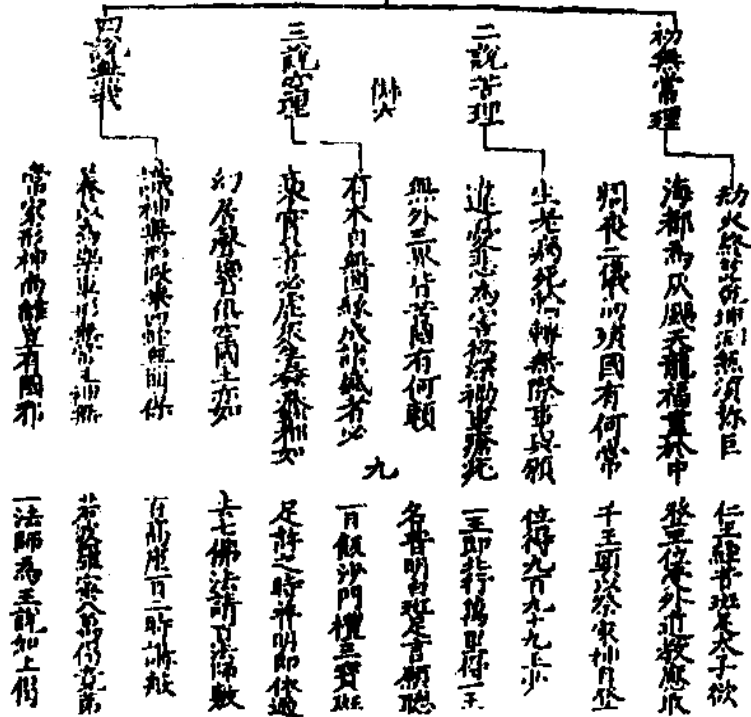 初無常理
劫火終訖乾坤洞燃須弥巨
海都為灰颺天龍福盡於中
凋喪二儀尚殞國有何常
二說苦理
生老病死輪轉無際事與願
違憂悲為害欲深禍重瘡疣
無外三界皆苦國有何賴
偈六
三說空理
有本自無因緣成諸盛者必
衰實者必虛眾生蠢蠢都如
幻居聲響俱空國土亦如
四說無我
識神無形假乘四蛇無明保
養以為樂車形無常主神無
常家形神尚離豈有國邪
九
仁王經普班足太子欲
登王位外道教應取
千王頭以祭家神自登
位得九百九十九王少
一王即北行萬里得一王
名普明白班足言願聽
一日飯沙門禮三寶班
足許之時普明即依過
去七佛法請百法師敷
百高座一日二時講般
若波羅蜜八萬偈竟第
一法師為王說如上偈